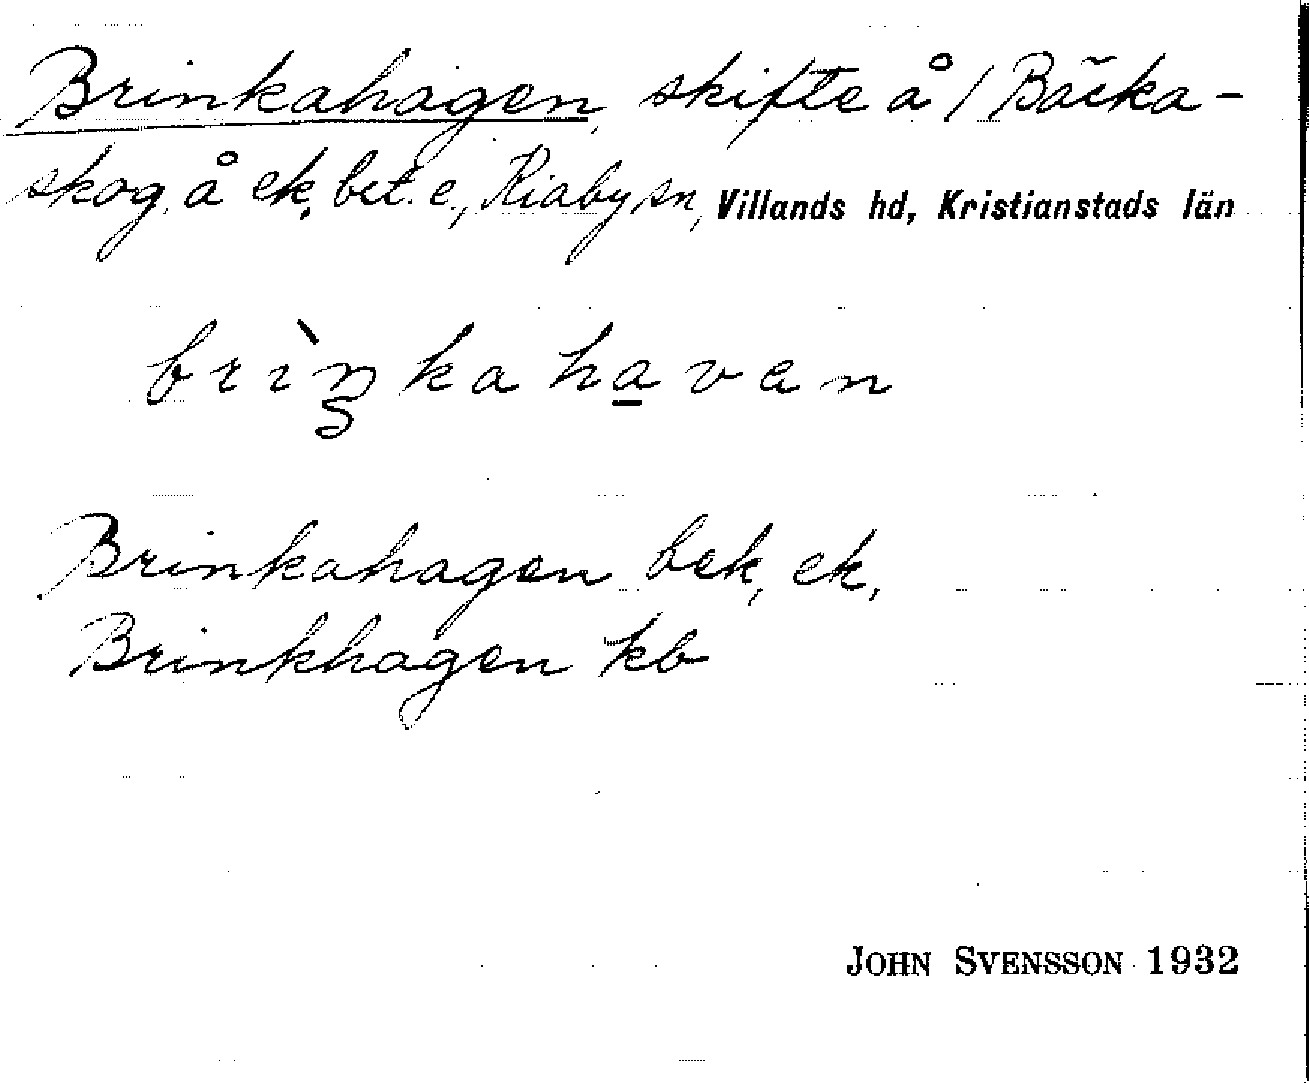 Brinkahagen, skifte å 1 Bäcka-
skog, å ek, bet. e., Kiaby sn, Villands hd, Kristianstads län
brìŋkahavan
Brinkahagen bek, ek,
Brinkhagen kb
JOHN SVENSSON 1932